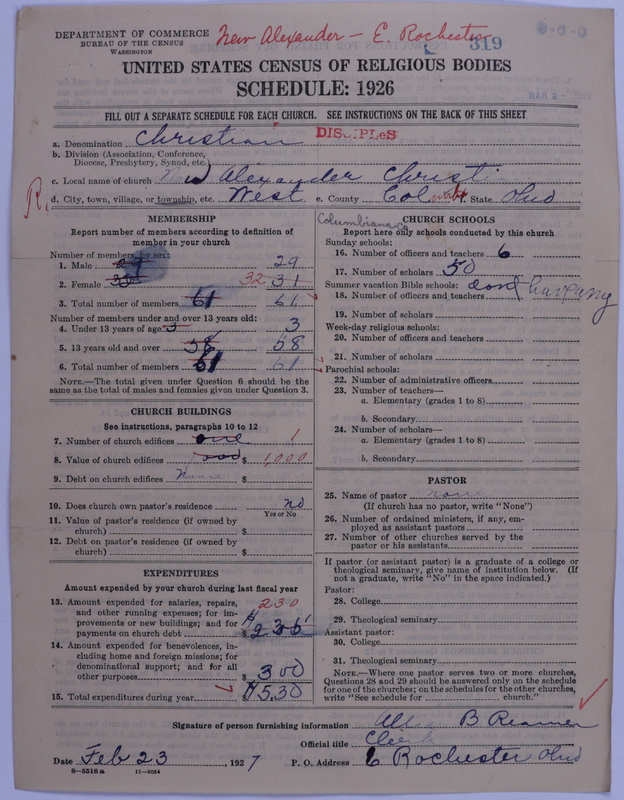 DEPARTMENT OF COMMERCE
BUREAU OF THE CENSUS
WASHINGTON
New Alexander - E. Rochester
319
UNITED STATES CENSUS OF RELIGIOUS BODIES
SCHEDULE: 1926
FILL OUT A SEPARATE SCHEDULE FOR EACH CHURCH. SEE INSTRUCTIONS ON THE BACK OF THIS SHEET
a. Denomination Christian DISCIPLeS
b. Division (Association, Conference, Diocese, Presbytery, Synod, etc.)
c. Local name of church Alexander Christi
R. d. City, town, village, or township, etc. West e. County Col State Ohio
Columbiana
MEMBERSHIP
Report number of members according to definition of member in your church
Number of members by sex:
1. Male 29
2. Female 32 31
3. Total number of members 61 61
Number of members under and over 13 years old:
4. Under 13 years of age 3 3
5. 13 years old and over 58 58
6. Total number of members 61 61
NOTE.—The total given under Question 6 should be the same as the total of males and females given under Question 3.
CHURCH BUILDINGS
See instructions, paragraphs 10 to 12
7. Number of church edifices one 1
8. Value of church edifices $ 1,000
9. Debt on church edifices None $
10. Does church own pastor's residence no
Yes or No
11. Value of pastor's residence (if owned by church) $
12. Debt on pastor's residence (if owned by church) $
EXPENDITURES
Amount expended by your church during last fiscal year
13. Amount expended for salaries, repairs, and other running expenses; for improvements or new buildings; and for payments on church debt 230 $
14. Amount expended for benevolences, including home and foreign missions; for denominational support; and for all other purposes $ 300
15. Total expenditures during year $ 530
CHURCH SCHOOLS
Report here only schools conducted by this church
Sunday schools:
16. Number of officers and teachers 6
17. Number of scholars 50
Summer vacation Bible schools: dont have any
18. Number of officers and teachers
19. Number of scholars
Week-day religious schools:
20. Number of officers and teachers
21. Number of scholars
Parochial schools:
22. Number of administrative officers
23. Number of teachers—
a. Elementary (grades 1 to 8)
b. Secondary
24. Number of scholars—
a. Elementary (grades 1 to 8)
b. Secondary
PASTOR
25. Name of pastor none
(If church has no pastor, write "None")
26. Number of ordained ministers, if any, employed as assistant pastors
27. Number of other churches served by the pastor or his assistants
If pastor (or assistant pastor) is a graduate of a college or theological seminary, give name of institution below. (If not a graduate, write "No" in the space indicated.)
Pastor:
28. College
29. Theological seminary
Assistant pastor:
30. College
31. Theological seminary
NOTE.—Where one pastor serves two or more churches, Questions 28 and 29 should be answered only on the schedule for one of the churches; on the schedules for the other churches, write "See schedule for church."
Signature of person furnishing information B
Official title
Date Feb 23, 1927 P. O. Address E Rochester Ohio
8—5518 a 11—9054